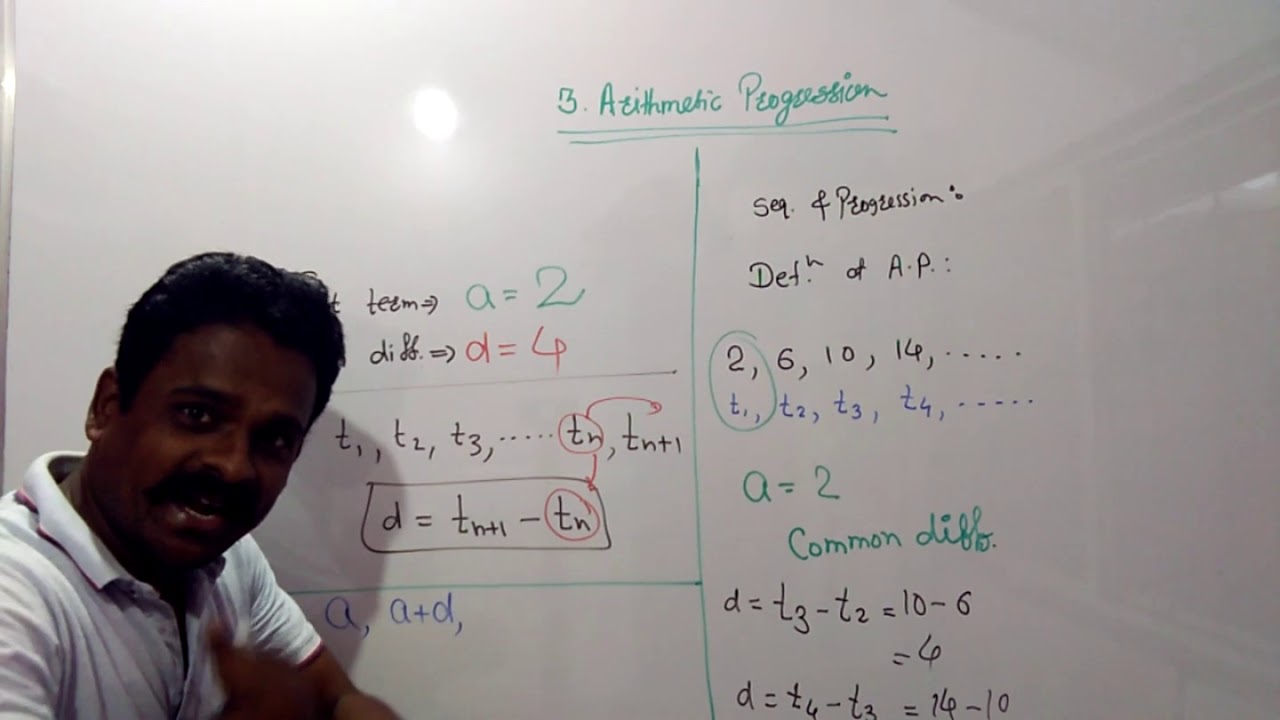 3. Arithmetic Progression
term⇒ a = 2
diff.⇒ d = 4
t₁, t₂, t₃, ..... tₙ, tₙ₊₁
d = tₙ₊₁ − tₙ
a, a+d,
Seq. & Progression:
Defⁿ. of A.P.:
2, 6, 10, 14, .....
t₁, t₂, t₃, t₄, .....
a = 2
Common diff.
d = t₃ − t₂ = 10 − 6
= 4
d = t₄ − t₃ = 14 − 10